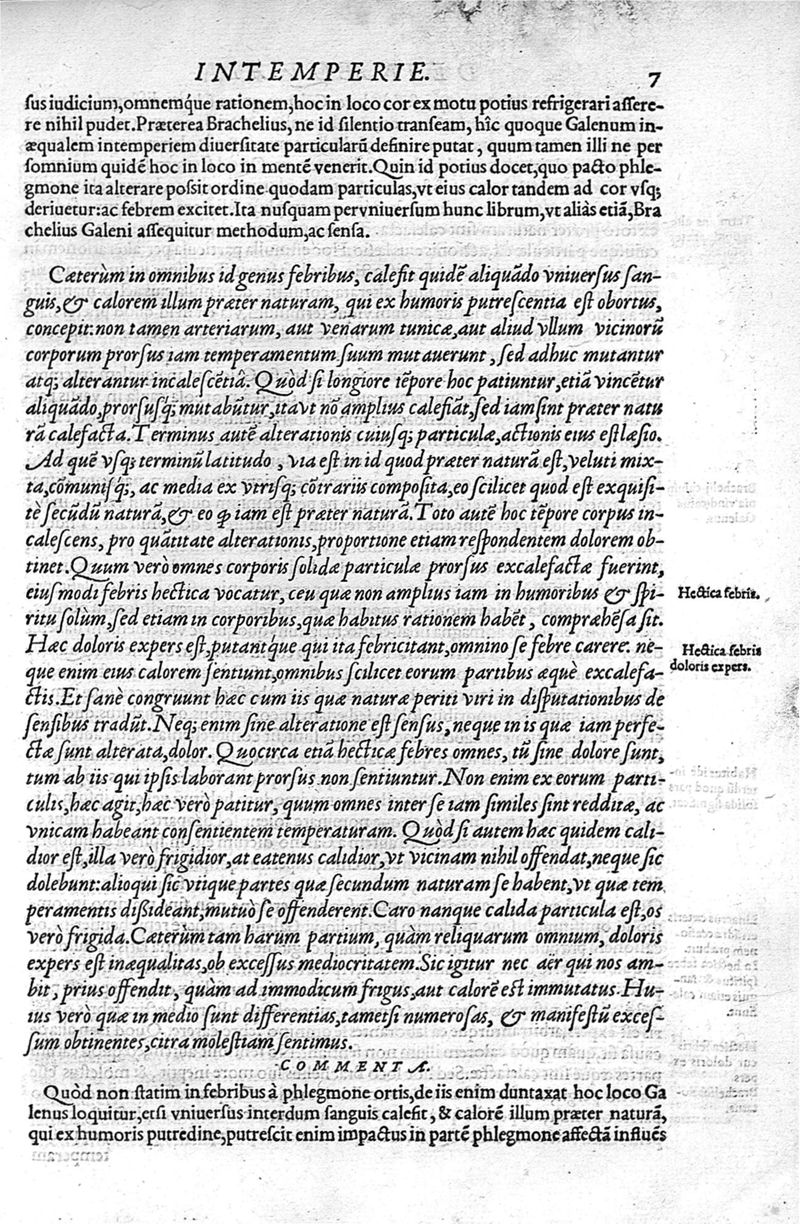 INTEMPERIE. 7
sus iudicium, omnemq́ue rationem, hoc in loco cor ex motu potius refrigerari assere-
re nihil pudet. Præterea Brachelius, ne id silentio transeam, hîc quoque Galenum in-
æqualem intemperiem diuersitate particularũ definire putat, quum tamen illi ne per
somnium quidẽ hoc in loco in mentẽ venerit. Quin id potius docet, quo pacto phle-
gmone ita alterare possit ordine quodam particulas, vt eius calor tandem ad cor vsq;
deriuetur: ac febrem excitet. Ita nusquam per vniuersum hunc librum, vt aliàs etiã, Bra
chelius Galeni assequitur methodum, ac sensa.
Cæterùm in omnibus id genus febribus, calefit quidẽ aliquãdo vniuersus san-
guis, & calorem illum præter naturam, qui ex humoris putrescentia est obortus,
concepit: non tamen arteriarum, aut venarum tunicæ, aut aliud vllum vicinorũ
corporum prorsus iam temperamentum suum mutauerunt, sed adhuc mutantur
atq; alterantur incalescẽtiâ. Quòd si longiore tẽpore hoc patiuntur, etiã vincẽtur
aliquãdo, prorsusq́; mutabũtur, ita vt nõ amplius calefiãt, sed iam sint præter natu
rã calefacta. Terminus autẽ alterationis cuiusq; particulæ, actionis eius est læsio.
Ad quẽ vsq; terminũ latitudo, via est in id quod præter naturã est, veluti mix-
ta, cõmunisq́;, ac media ex vtrisq; cõtrariis composita, eo scilicet quod est exquisi-
tè secũdũ naturã, & eo ꝙ iam est præter naturã. Toto autẽ hoc tẽpore corpus in-
calescens, pro quãtitate alterationis, proportione etiam respondentem dolorem ob-
tinet. Quum verò omnes corporis solidæ particulæ prorsus excalefactæ fuerint,
eiusmodi febris hectica vocatur, ceu quæ non amplius iam in humoribus & spi-
ritu solùm, sed etiam in corporibus, quæ habitus rationem habẽt, compræhẽsa sit.
Hæc doloris expers est, putantq́ue qui ita febricitant, omnino se febre carere: ne-
que enim eius calorem sentiunt, omnibus scilicet eorum partibus æquè excalefa-
ctis. Et sanè congruunt hæc cum iis quæ naturæ periti viri in disputationibus de
sensibus tradũt. Neq; enim sine alteratione est sensus, neque in is quæ iam perfe-
ctæ sunt alterata, dolor. Quocirca etiã hecticæ febres omnes, tũ sine dolore sunt,
tum ab iis qui ipsis laborant prorsus non sentiuntur. Non enim ex eorum parti-
culis, hæc agit, hæc verò patitur, quum omnes inter se iam similes sint redditæ, ac
vnicam habeant consentientem temperaturam. Quòd si autem hæc quidem cali-
dior est, illa verò frigidior, at eatenus calidior, vt vicinam nihil offendat, neque sic
dolebunt: alioqui sic vtique partes quæ secundum naturam se habent, vt quæ tem
peramentis dißideant, mutuò se offenderent. Caro nanque calida particula est, os
verò frigida. Cæterùm tam harum partium, quàm reliquarum omnium, doloris
expers est inæqualitas, ob excessus mediocritatem. Sic igitur nec aër qui nos am-
bit, prius offendit, quàm ad immodicum frigus, aut calorẽ est immutatus. Hu-
ius verò quæ in medio sunt differentias, tametsi numerosas, & manifestũ exces-
sum obtinentes, citra molestiam sentimus.
Hectica febris.
Hectica febris
doloris expers.
COMMENTA.
Quòd non statim in febribus à phlegmone ortis, de iis enim duntaxat hoc loco Ga
lenus loquitur, etsi vniuersus interdum sanguis calefit, & calorẽ illum præter naturã,
qui ex humoris putredine, putrescit enim impactus in partẽ phlegmone affectã influẽs